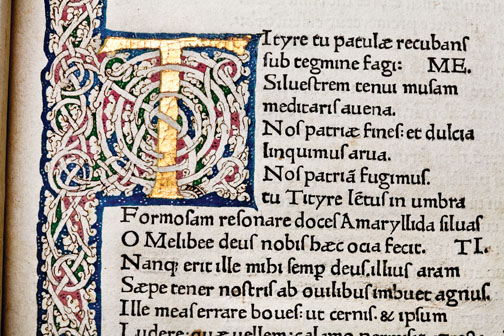 Tityre tu patulæ recubans
sub tegmine fagi: ME.
Siluestrem tenui musam
meditaris auena.
Nos patriæ fines: et dulcia
linquimus arua.
Nos patriã fugimus.
tu Tityre lẽtus in umbra
Formosam resonare doces Amaryllida siluas
O Melibee deus nobis hæc ocia fecit. TI.
Nanq; erit ille mihi semp deus, illius aram
Sæpe tener nostris ab ouilibus imbuet agnus.
Ille meas errare boues: ut cernis. & ipsum
Ludere: quæ uellem: calamo